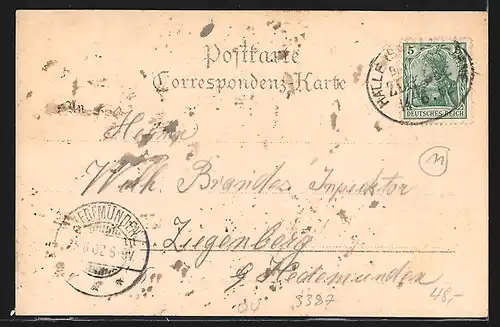 Postkarte
Correspondenz-Karte
An
Herrn
Wilh. Brandes Inspektor
Ziegenberg
b/ Hedemünden
5
DEUTSCHES REICH
HALLE
ZUG
HEDEMÜNDEN
6 02
n
3387
48,-